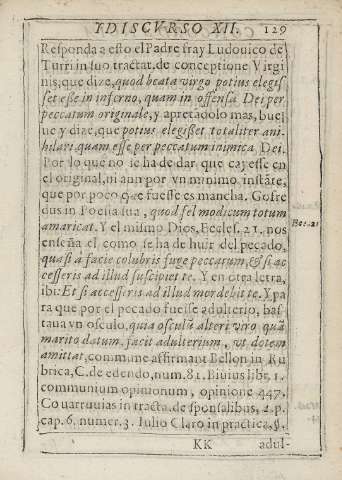 Y DISCVRSO XII. 129
Responda a esto el Padre fray Ludouico de
Turri in suo tractat. de conceptione Virgi
nis, que dize, quod beata virgo potius elegis
set esse in inferno, quam in offensa Dei per
peccatum originale, y apretadolo mas, buel
ue y dize, que potius elegisset totaliter ani-
hilari, quam esse per peccatum inimica Dei.
Por lo que no se ha de dar, que cayesse en
el original, ni aun por vn minimo instãte,
que por poco que fuesse es mancha. Gofre
dus in Poesia sua, quod fel modicum totum
amaricat. Y el mismo Dios, Eccles. 21. nos
Ecc. 21
enseña el como se ha de huir del pecado,
quasi à facie colubris fuge peccatum, & si ac
cesseris ad illud suscipiet te. Y en otra letra,
ibi: Et si accesseris ad illud mordebit te. Y pa
ra que por el pecado fuesse adulterio, bas
taua vn osculo, quia osculũ alteri viro quã
marito datum, facit adulterium, vt dotem
amittat, comme affirmant Bellon in Ru
brica, C. de edendo, num. 81. Biuius libr. 1.
communium opinionum, opinione 447.
Couarruuias in tracta. de sponsalibus, 2. p.
cap. 6. numer. 3. Iulio Claro in practica, §.
KK adul-